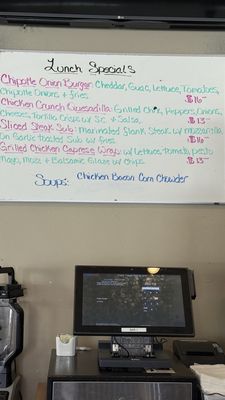 Lunch Specials
Chipotle Onion Burger: Cheddar, Guac, Lettuce, Tomatoes,
Chipotle Onions + fries $16-
Chicken Crunch Quesadilla: Grilled Chix, Peppers, Onions,
Cheeses, Tortilla Crisps w/ S.C. + Salsa. $13-
Sliced Steak Sub: Marinated flank Steak w/ mozzarella,
On Garlic toasted Sub w/ fries $16-
Grilled Chicken Caprese Wrap: w/ Lettuce, tomato, pesto
Mayo, Mozz + Balsamic Glaze w/ chips $13-
Soups: Chicken Bacon Corn Chowder